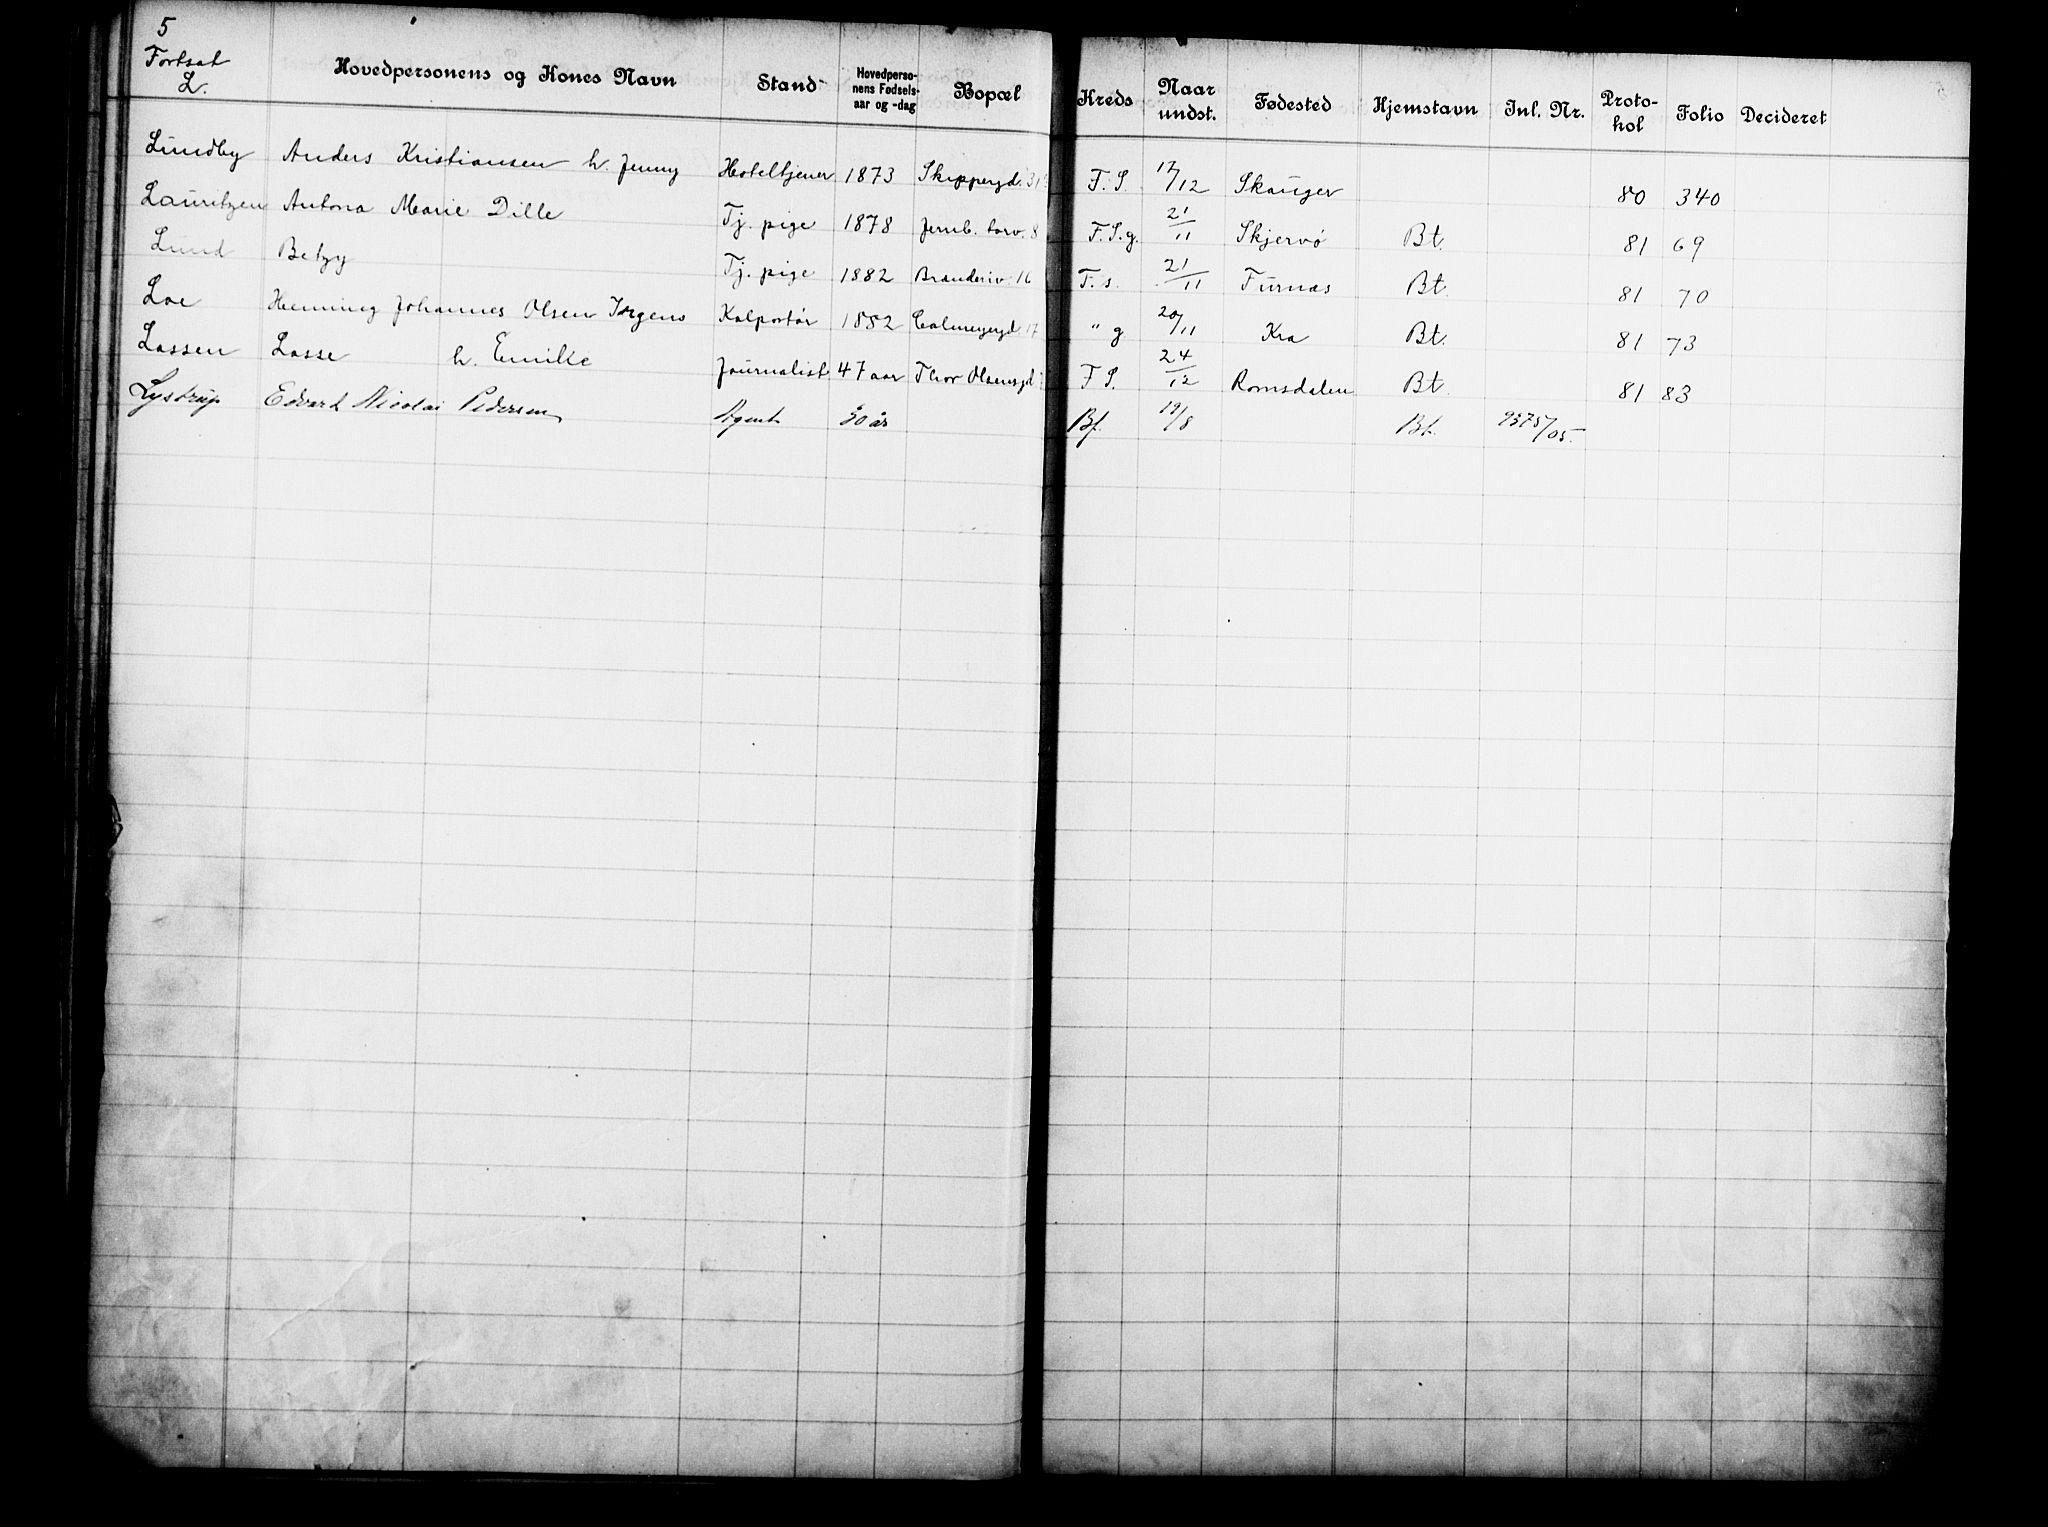 5
Fortsat
L.
Hovedpersonens og Kones Navn Stand Hovedperso-nens Fødsels-aar og -dag Bopæl Kreds Naar undst. Fødested Hjemstavn Inl. Nr. Proto-kol Folio Decideret
Lundby Anders Kristiansen h. Jenny Hoteltjener 1873 Skippergd. 31 F. S. 17/12 Skauger 80 340
Lauritzen Antona Marie Dille Tj. pige 1878 Jernb. torv. 8 F. S. g. 21/11 Skjervö Bt. 81 69
Lund Betzy Tj. pige 1882 16 F. s. 21/11 Furnæs Bt. 81 70
Loe Henning Johannes Olsen Kolportør 1882 Calmeyergd. 17 " g 20/11 Kra Bt. 81 73
Lassen Lasse h. Emilie Journalist 47 aar Thor Olsensgd F S. 24/12 Romsdalen Bt. 81 83
Lystrup Edvard Nicolai Pedersen Agent 50 år Bf. 19/8 Bt. 9575/05.